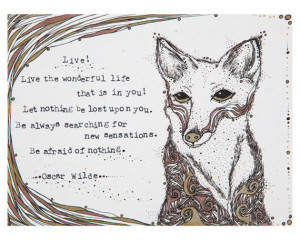 Live!
Live the wonderful life
that is in you!
Let nothing be lost upon you.
Be always searching for
new sensations.
Be afraid of nothing.
Oscar Wilde